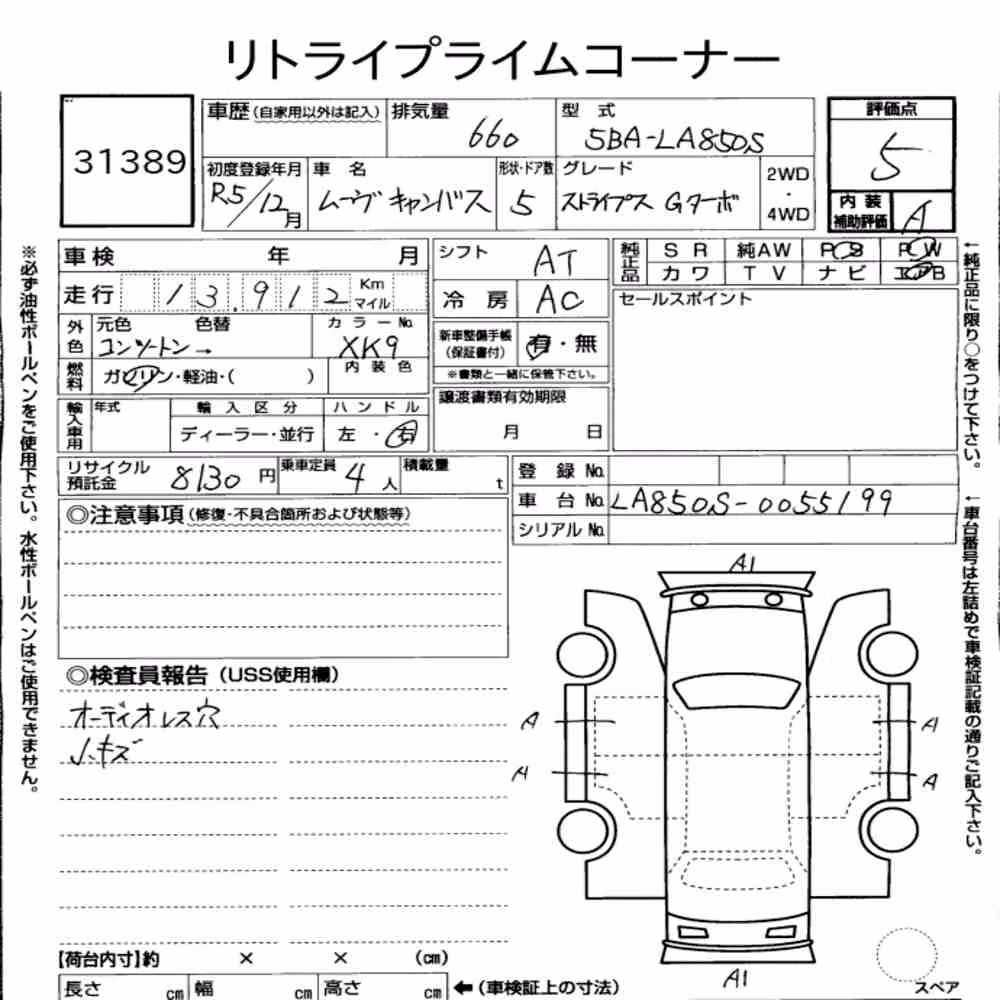 リトライプライムコーナー
31389
車歴(自家用以外は記入)
排気量
660
型 式
5BA-LA850S
評価点
5
初度登録年月
R5/12月
車 名
ムーヴ キャンバス
形状・ドア数
5
グレード
ストライプス Gターボ
2WD
・
4WD
内 装
補助評価
A
車検 年 月
シフト
AT
純正品
SR 純AW PS PW
カワ TV ナビ エアB
走行 13,912 Km
マイル
冷 房
AC
セールスポイント
外色
元色 色替
コンツートン→
カラーNo.
XK9
新車整備手帳
(保証書付)
有・無
※書類と一緒に保管下さい。
燃料
ガソリン・軽油・( )
内装色
譲渡書類有効期限
月 日
輸入車用
年式
輸入区分
ディーラー・並行
ハンドル
左・右
リサイクル
預託金
8130 円
乗車定員
4 人
積載量
t
登 録 No.
車 台 No. LA850S-0055199
シリアル No.
◎注意事項(修復・不具合箇所および状態等)
◎検査員報告(USS使用欄)
オーディオレス穴
小キズ
A1
A
A
A
A
A1
スペア
【荷台内寸】約 × × (cm)
長さ cm 幅 cm 高さ cm ←(車検証上の寸法)
※必ず油性ボールペンをご使用下さい。水性ボールペンはご使用できません。
←純正品に限り○をつけて下さい。
←車台番号は左詰めで車検証記載の通りご記入下さい。